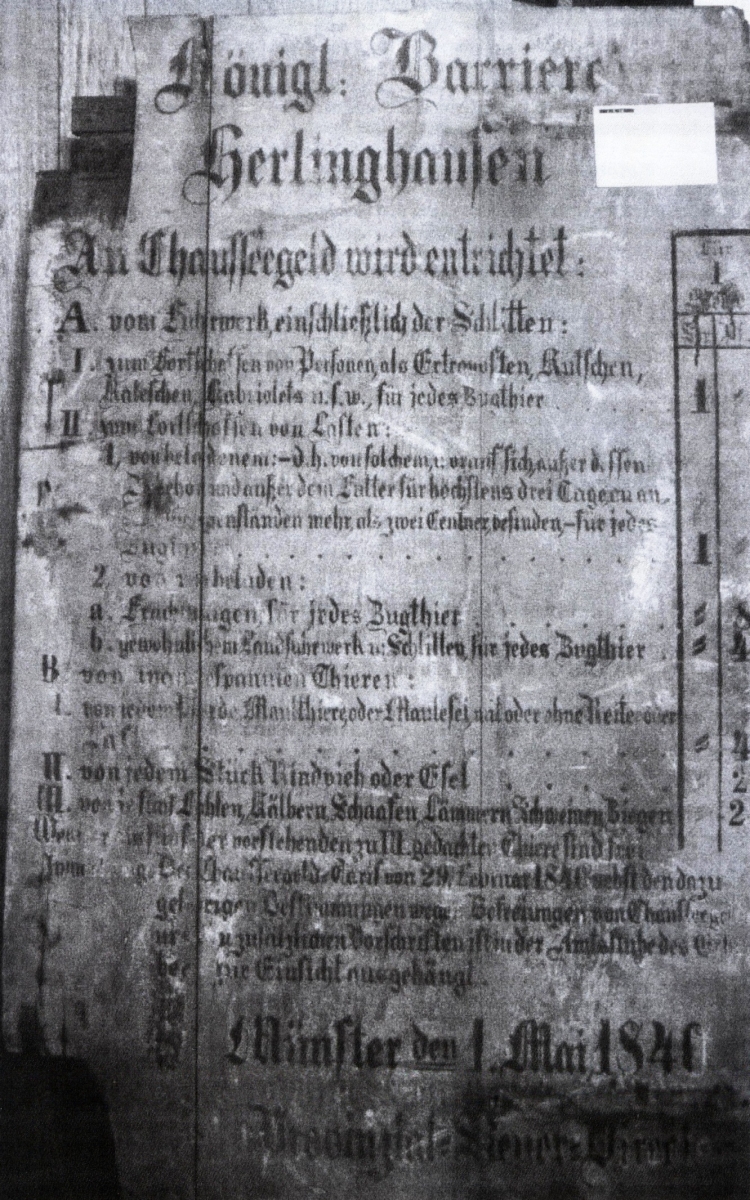 Königl: Barriere
Herlinghausen
An Chausseegeld wird entrichtet:
Für
1
Sg. Pf.
A. vom Fuhrwerk, einschließlich der Schlitten:
I. zum Fortschaffen von Personen, als Extraposten, Kutschen,
Kaleschen, Kabriolets u.s.w., für jedes Zugthier 1 "
II zum Fortschaffen von Lasten:
1, von beladenem:–d.h. von solchem, worauf sich außer dessen
Zubehör und außer dem Futter für höchstens drei Tage, an
gegenständen mehr, als zwei Centner befinden,–für jedes
Zugthier 1
2, von unbeladen:
a. Frachtwagen, für jedes Zugthier " 8
b. gewöhnlichem Landfuhrwerk u: Schlitten, für jedes Zugthier " 4
B von unangespannten Thieren:
I. von jedem Pferde, Maulthiere, oder Maulesel mit oder ohne Reiter oder
Last " 4
II. von jedem Stück Rindvieh oder Esel 2
III. von je fünf Fohlen, Kälbern, Schaafen, Lämmern, Schweinen, Ziegen 2
Weniger als fünf der vorstehenden zu III. gedachten Thiere sind frei
Der Chausseegeld-Tarif von 29. Februar 1840 nebst den dazu
gehörigen Bestimmungen wegen Befreiungen von Chausseegeld
und zusätzlichen Vorschriften ist in der Amtsstube des
zur Einsicht ausgehängt.
Münster den 1. Mai 1840
Provinzial-Steuer-Direct